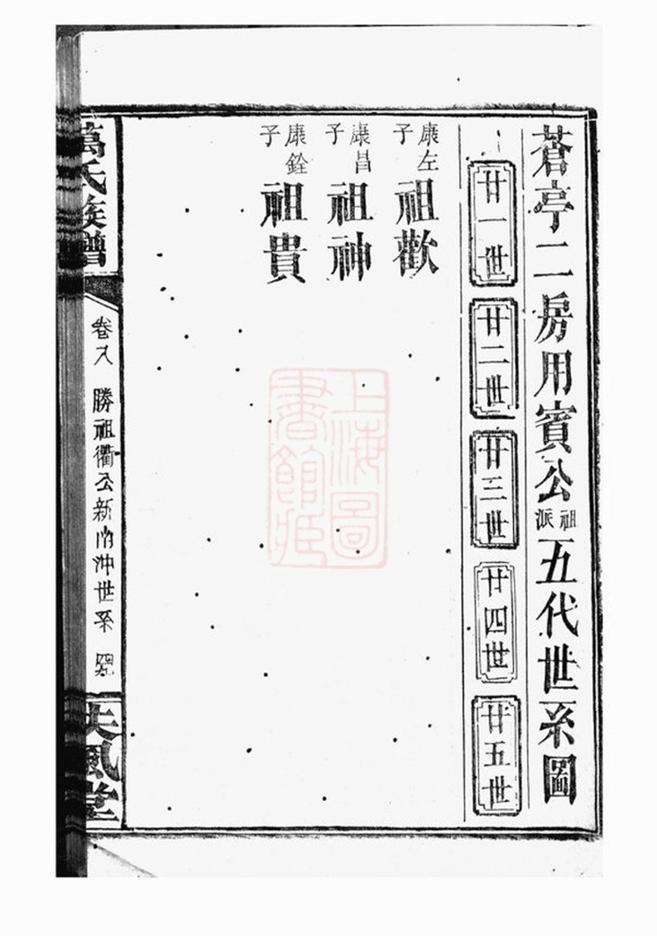 蒼亭二房用賓公祖派五代世系圖
廿一世
廿二世
廿三世
廿四世
廿五世
康左子
祖歡
康昌子
祖神
康銓子
祖貴
萬氏族譜
卷八 勝祖衢公新南沖世系
夫風堂
上海圖書館藏